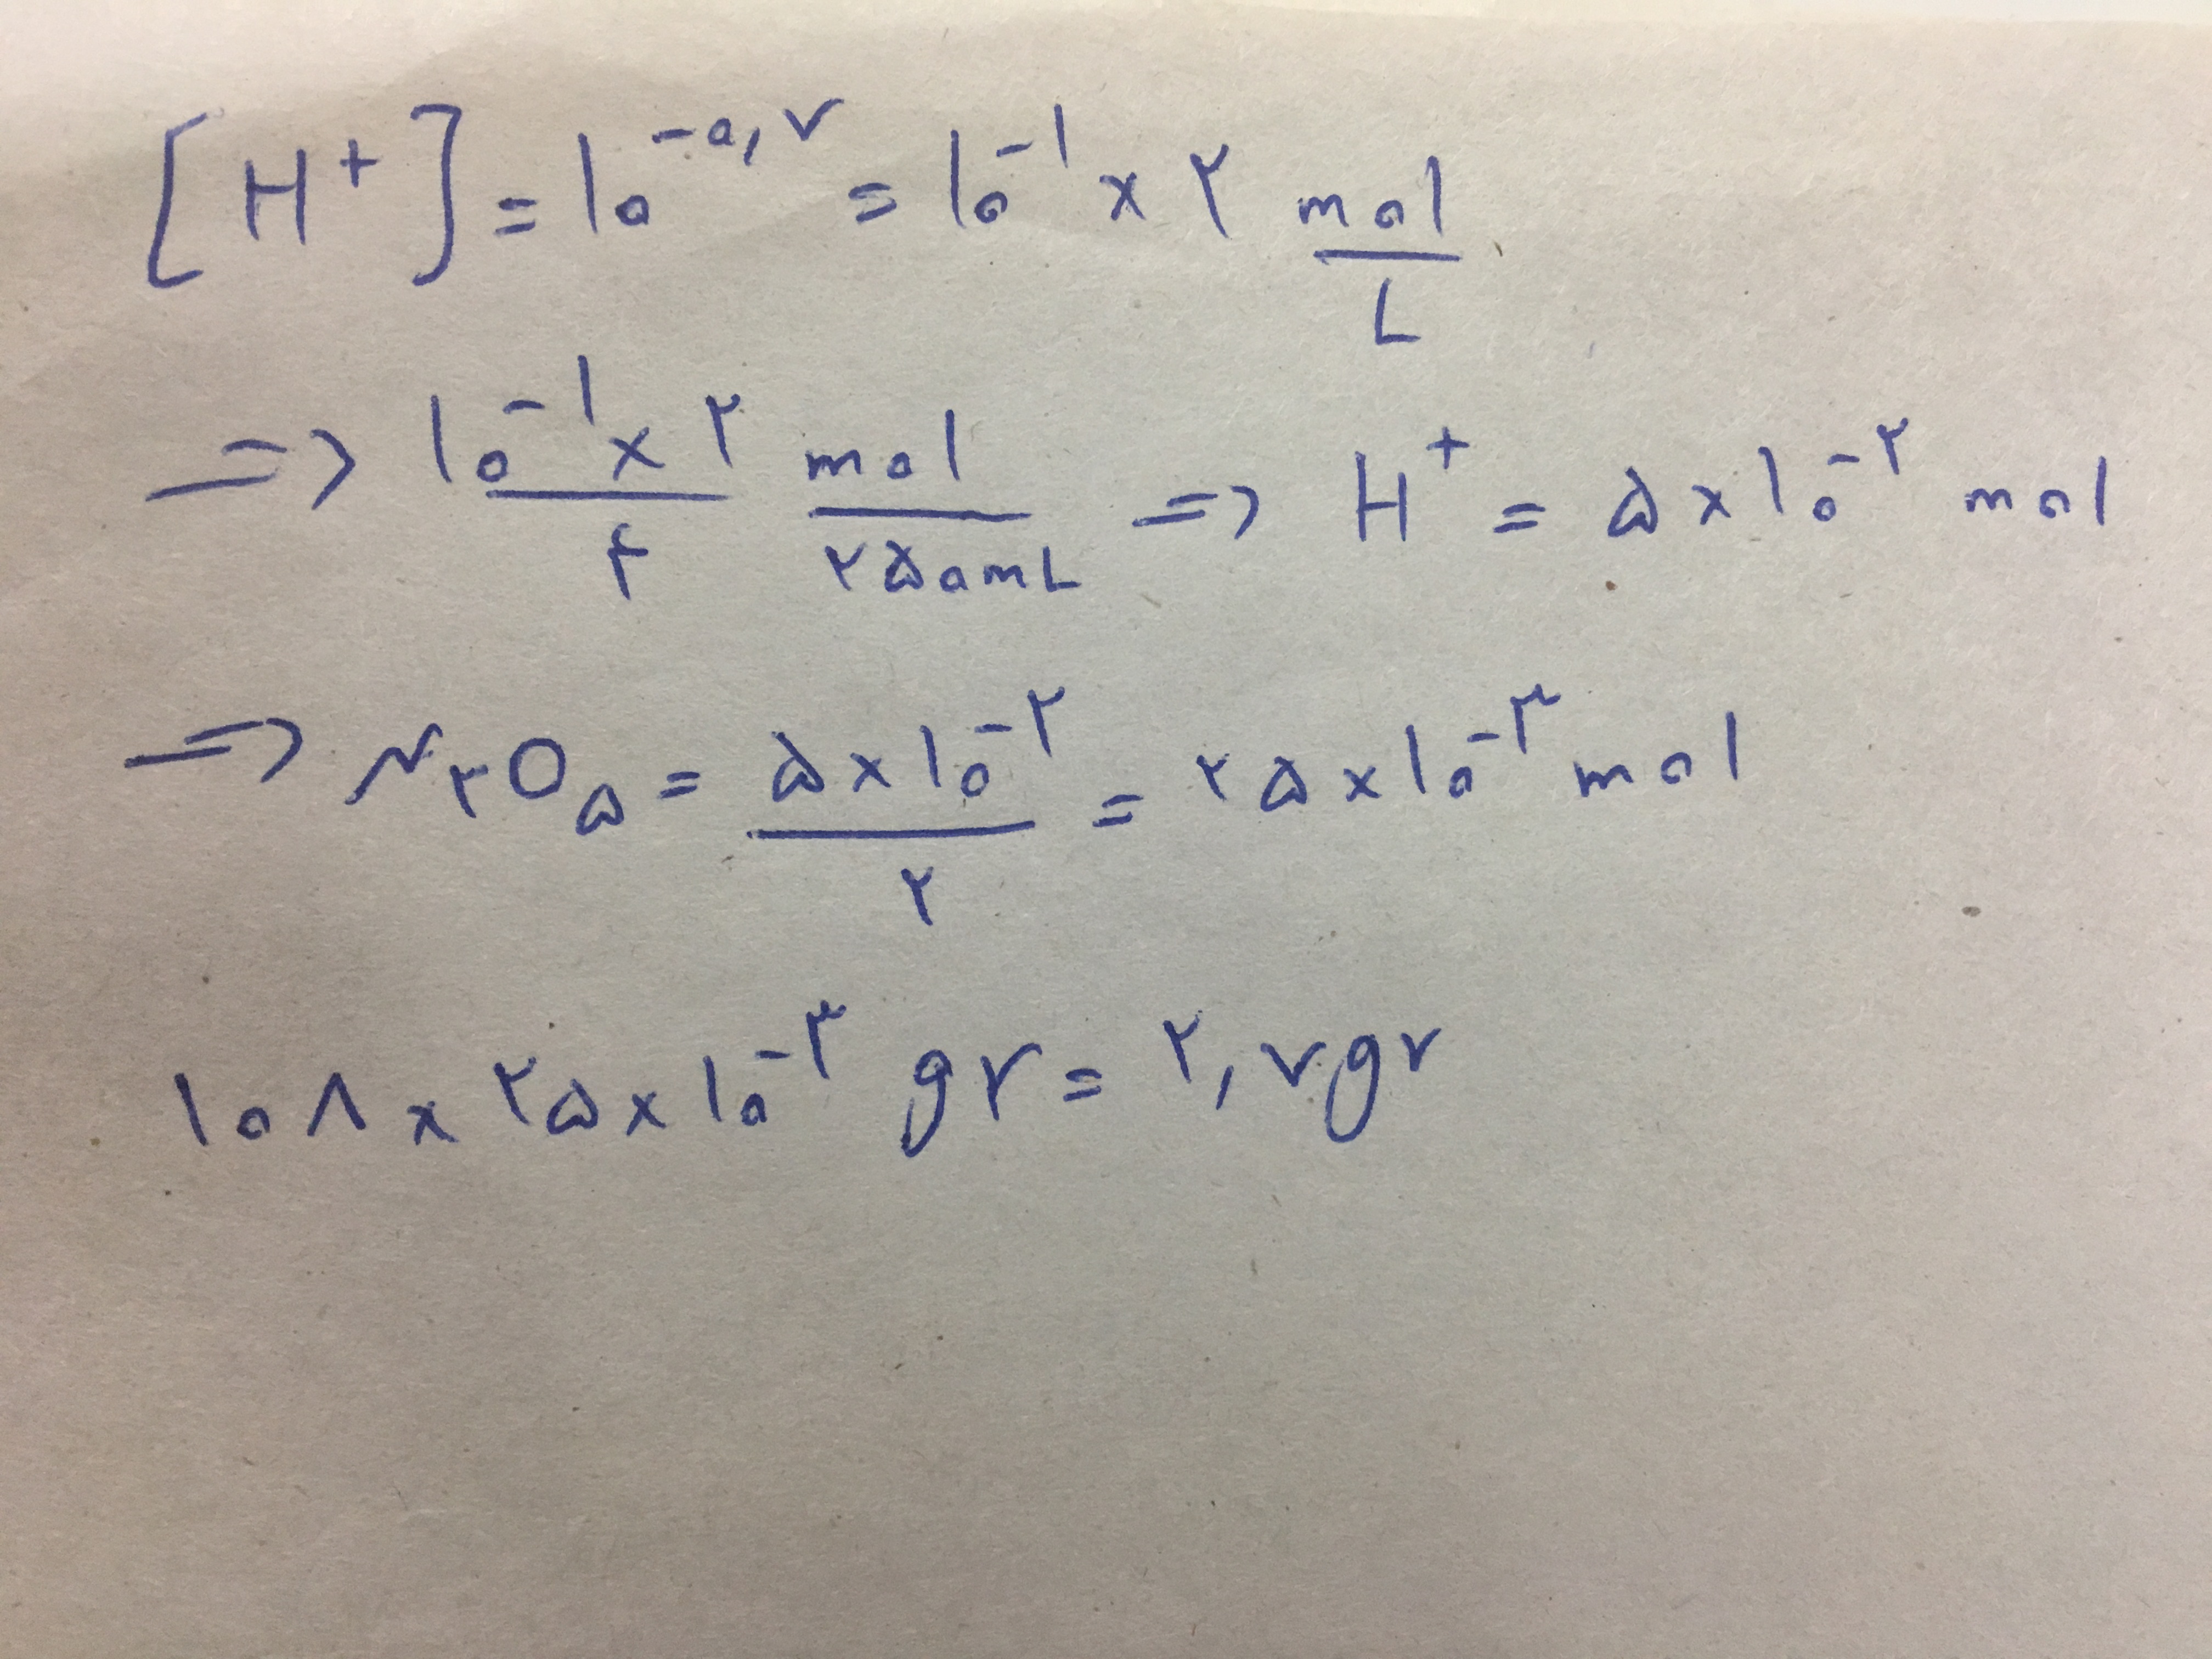 [H⁺] = ۱۰^-۰,۷ = ۱۰^-۱ × ۲ mol/L
=> ۱۰^-۱ × ۲/۴ mol/۲۵۰mL => H⁺ = ۵ × ۱۰^-۲ mol
=> N₂O₅ = ۵ × ۱۰^-۲/۲ = ۲۵ × ۱۰^-۳ mol
۱۰۸ × ۲۵ × ۱۰^-۳ gr = ۲,۷ gr